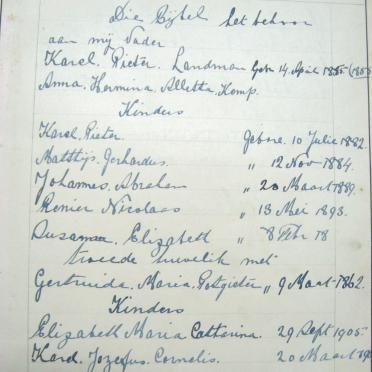 Die Bijbel het behoor
aan mij Vader
Karel. Pieter. Landman Geb 14 April 1855 (1855
Anna. Hermina. Alletta. Kemp.
Kinders
Karel. Pieter. Gebore. 10 Julie 1882.
Matthijs. Gerhardus. " 12 Nov 1884.
Johannes. Abraham " 20 Maart 1889.
Renier Nicolaas " 13 Mei 1893.
Susanna. Elizabeth " 8 Febr 18
tweede huwelik met
Gertruida. Maria. Potgieter " 9 Maart 1862.
Kinders
Elizabeth Maria Catherina. 29 Sept 1905
Karel. Jozefus. Cornelis. 20 Maart